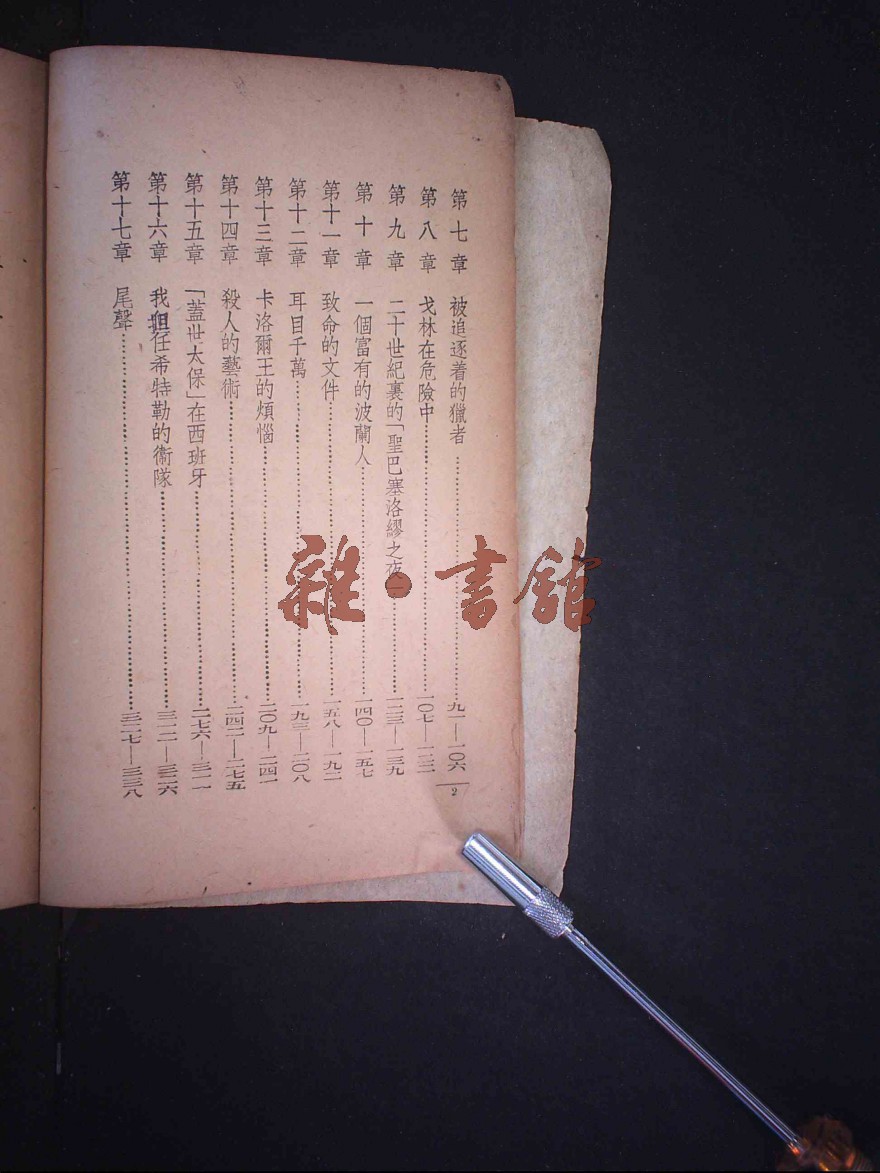 第七章 被追逐着的獵者……九一—一〇六
第八章 戈林在危險中……一〇七—一二二
第九章 二十世紀裏的「聖巴塞洛繆之夜」……一二三—一三九
第十章 一個富有的波蘭人……一四〇—一五七
第十一章 致命的文件……一五八—一九二
第十二章 耳目千萬……一九三—二〇八
第十三章 卡洛爾王的煩惱……二〇九—二四一
第十四章 殺人的藝術……二四二—二七五
第十五章 「蓋世太保」在西班牙……二七六—三一一
第十六章 我担任希特勒的衛隊……三一二—三二六
第十七章 尾聲……三二七—三三八
2
雜·書館